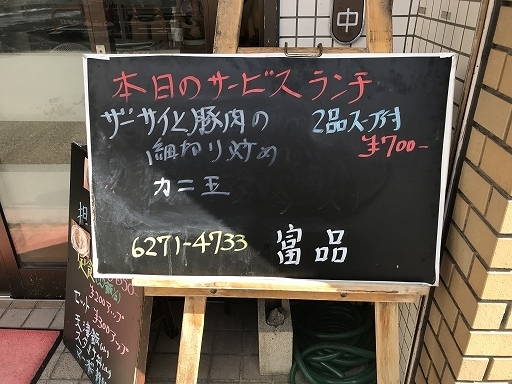 中
本日のサービスランチ
ザーサイと豚肉の
細切り炒め
2品スープ付
¥700-
カニ玉
6271-4733
富品
¥200アップ
セット ¥300アップ